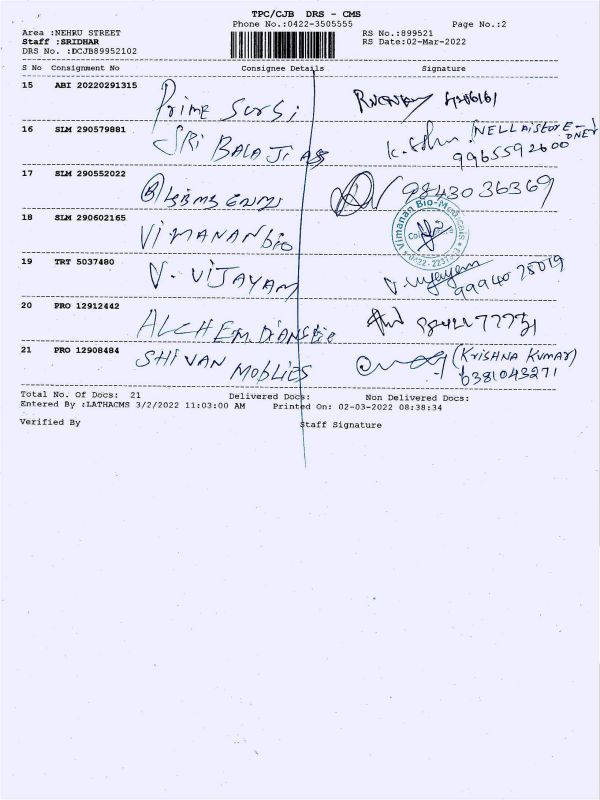 TPC/CJB DRS - CMS
Phone No.:0422-3505555 Page No.:2
Area :NEHRU STREET RS No.:899521
Staff :SRIDHAR RS Date:02-Mar-2022
DRS No. :DCJB89952102
S No Consignment No Consignee Details Signature
15 ABI 20220291315 Prime Sorsi
16 SLM 290579881 SRI BALAJI K. NELLAI STORE
9965592600 OWNER
17 SLM 290552022 9843036369
18 SLM 290602165 VIMANAN bio Vimanan Bio-Medicals
19 TRT 5037480 V. VIJAYAM V. Vijayam
99940 75019
20 PRO 12912442 ALCHEM
21 PRO 12908484 SHIVAN MOBLIES (KRISHNA KUMAR)
6381043271
Total No. Of Docs: 21 Delivered Docs: Non Delivered Docs:
Entered By :LATHACMS 3/2/2022 11:03:00 AM Printed On: 02-03-2022 08:38:34
Verified By Staff Signature